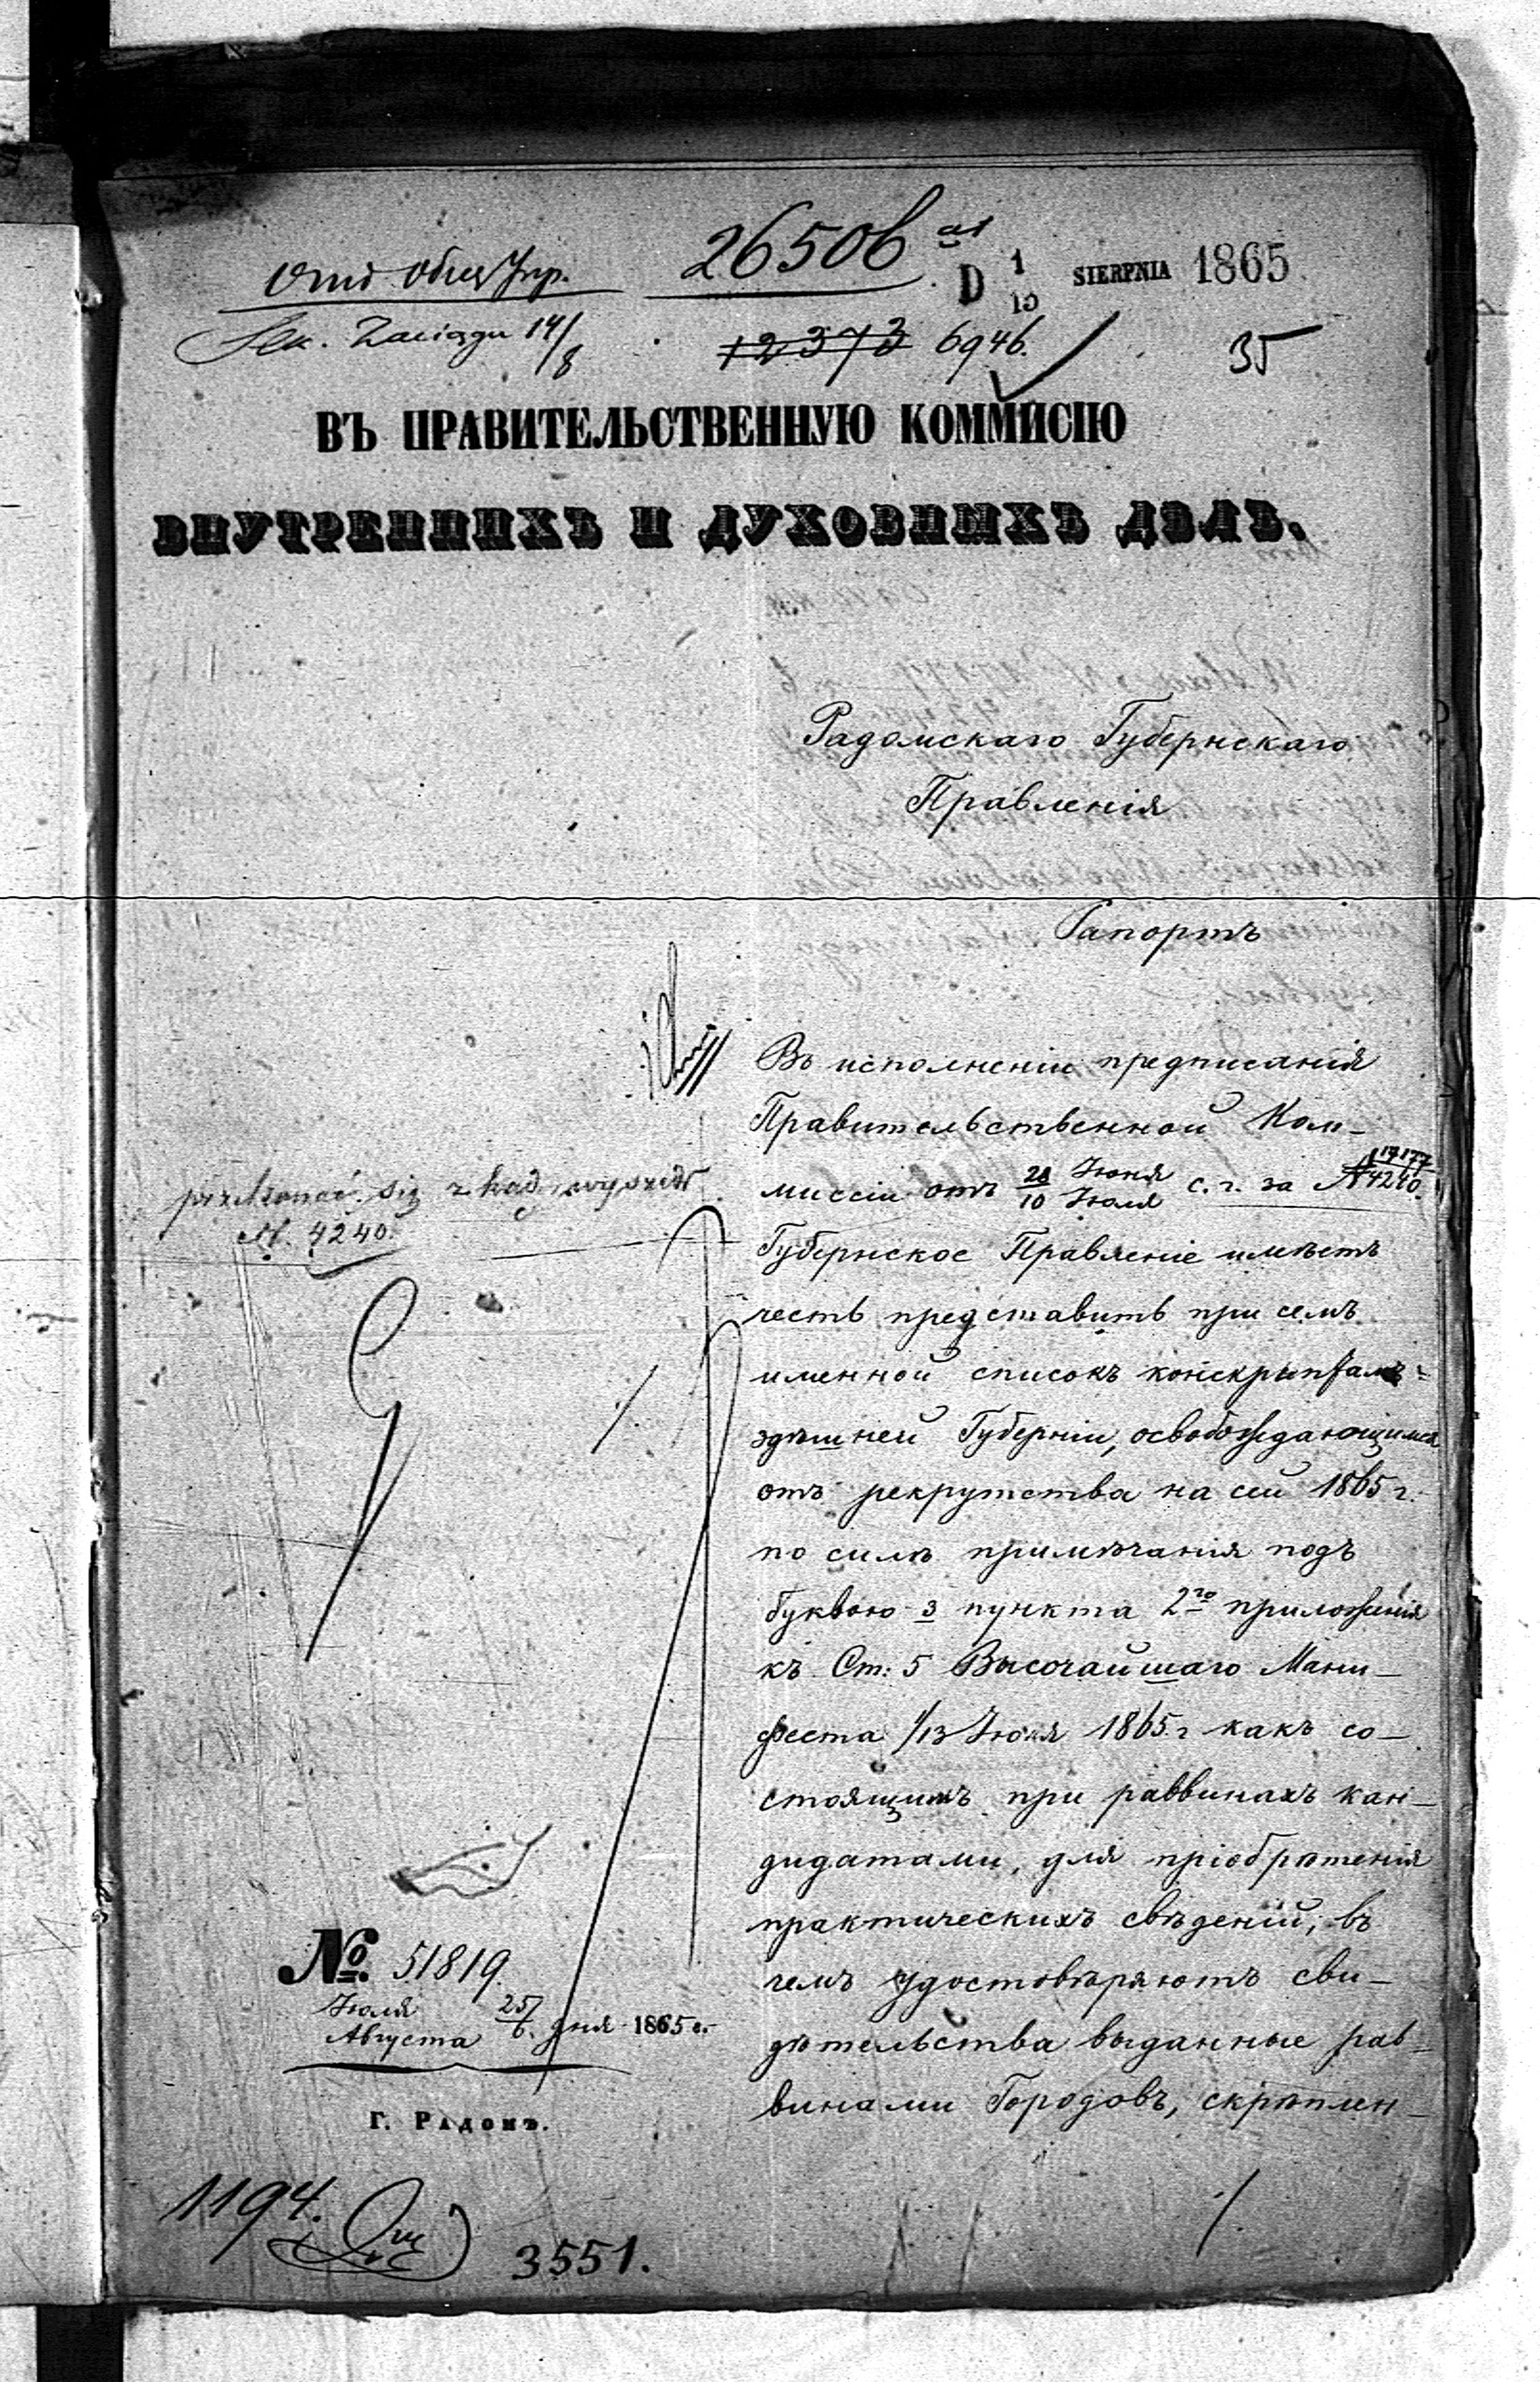 Отд. Общ. Упр. 26506
D 1/13 SIERPNIA 1865
Sek. Zaciągu 14/8 12373 6946. 35
ВЪ ПРАВИТЕЛЬСТВЕННУЮ КОММИСІЮ
ВНУТРЕННИХЪ И ДУХОВНЫХЪ ДѢЛЪ.
Радомскаго Губернскаго
Правленія
Рапортъ
Въ исполненіе предписанія
Правительственной Ком-
миссіи отъ 28 Іюня / 10 Іюля с. г. за № 17177/4240.
Губернское Правленіе имѣетъ
честь представить при семъ
именной списокъ конскриптамъ
здѣшней Губерніи, освобождающимся
отъ рекрутства на сей 1865 г.
по силѣ примѣчанія подъ
буквою з пункта 2го приложенія
къ Ст: 5 Высочайшаго Мани-
феста 1/13 Іюня 1865 г какъ со-
стоящимъ при раввинахъ кан-
дидатами, для пріобрѣтенія
практическихъ свѣденій, въ
чемъ удостовѣряютъ сви-
дѣтельства выданные рав-
винами Городовъ, скрѣплен-
./.
przekonać się zkąd wyszedł
N. 4240.
№ 51819.
Іюля 25
Августа 6. дня 1865 г.
Г. РАДОМЪ.
1194.
3551.